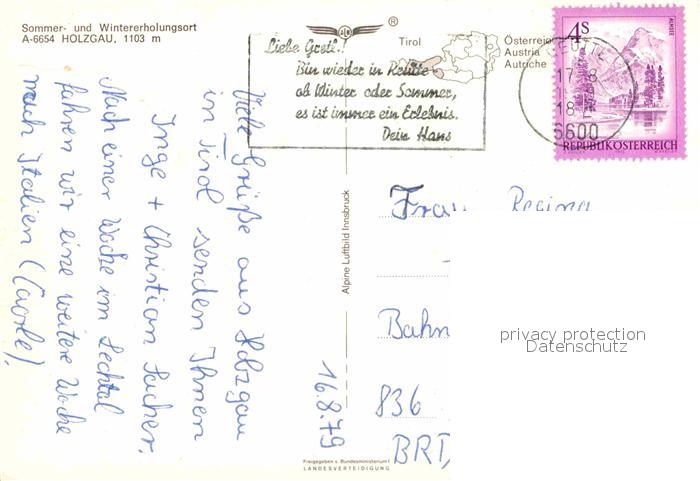 Sommer- und Wintererholungsort
A-6654 HOLZGAU, 1103 m
AD ®
Tirol
Österreich
Austria
Autriche
Liebe Gretl.!
Bin wieder in Reutte
ob Winter oder Sommer,
es ist immer ein Erlebnis.
Dein Hans
REUTTE
17.8
18
6600
4S
ALMSEE
REPUBLIK ÖSTERREICH
Viele Grüße aus Holzgau
in Tirol senden Ihnen
Inge + Christian
Nach einer Woche im Lechtal
fahren wir eine weitere Woche
nach Italien (Caorle).
16.8.79
Alpine Luftbild Innsbruck
Frau Regina
Bahn
836
BRD
privacy protection
Datenschutz
Freigegeben v. Bundesministerium f.
LANDESVERTEIDIGUNG